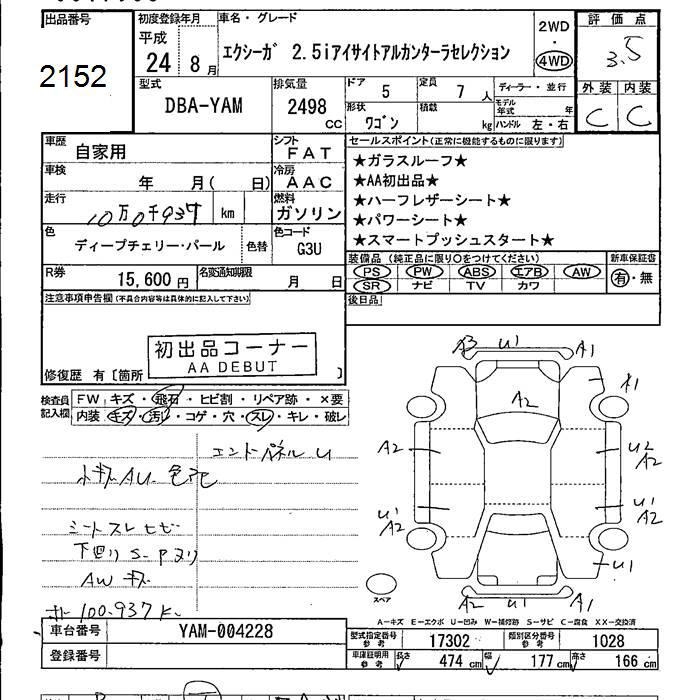 出品番号
2152
初度登録年月
平成
24 8 月
車名・グレード
エクシーガ 2.5iアイサイトアルカンターラセレクション
2WD
・
4WD
評価点
3.5
外装 内装
C C
型式
DBA-YAM
排気量
2498
CC
ドア
5
定員
7 人
形状
ワゴン
積載
kg
ディーラー・並行
モデル年式 年
ハンドル 左・右
車歴
自家用
シフト
FAT
車検
年 月( 日)
冷房
AAC
走行
10万0千937 km
燃料
ガソリン
色
ディープチェリー・パール
色替
色コード
G3U
R券
15,600 円
名変通知期限
月 日
セールスポイント(正常に機能するものに限ります)
★ガラスルーフ★
★AA初出品★
★ハーフレザーシート★
★パワーシート★
★スマートプッシュスタート★
装備品 (純正品に限り○をつけてください)
PS PW ABS エアB AW
SR ナビ TV カワ
新車保証書
有・無
後日品
注意事項申告欄(不具合内容等は具体的に記入して下さい)
初出品コーナー
AA DEBUT
修復歴 有〔箇所 〕
検査員記入欄
FW キズ・飛石・ヒビ割・リペア跡・×要
内装 キズ・汚れ・コゲ・穴・スレ・キレ・破レ
エンドパネル U
小キズAU 色アセ
シートスレ ヒビ
下廻り S-Pヌリ
AW キズ
100.937K
A3 U1 A1
A2
A1
A2
U2
A2
U1
A2
U1
A2
U1
A2 U1 A1
スペア
A-キズ E-エクボ U-凹み W-補修跡 S-サビ C-腐食 XX-交換済
車台番号
YAM-004228
登録番号
型式指定番号
参考
17302
類別区分番号
参考
1028
車庫証明用
参考
長さ
474 cm
幅
177 cm
高さ
166 cm